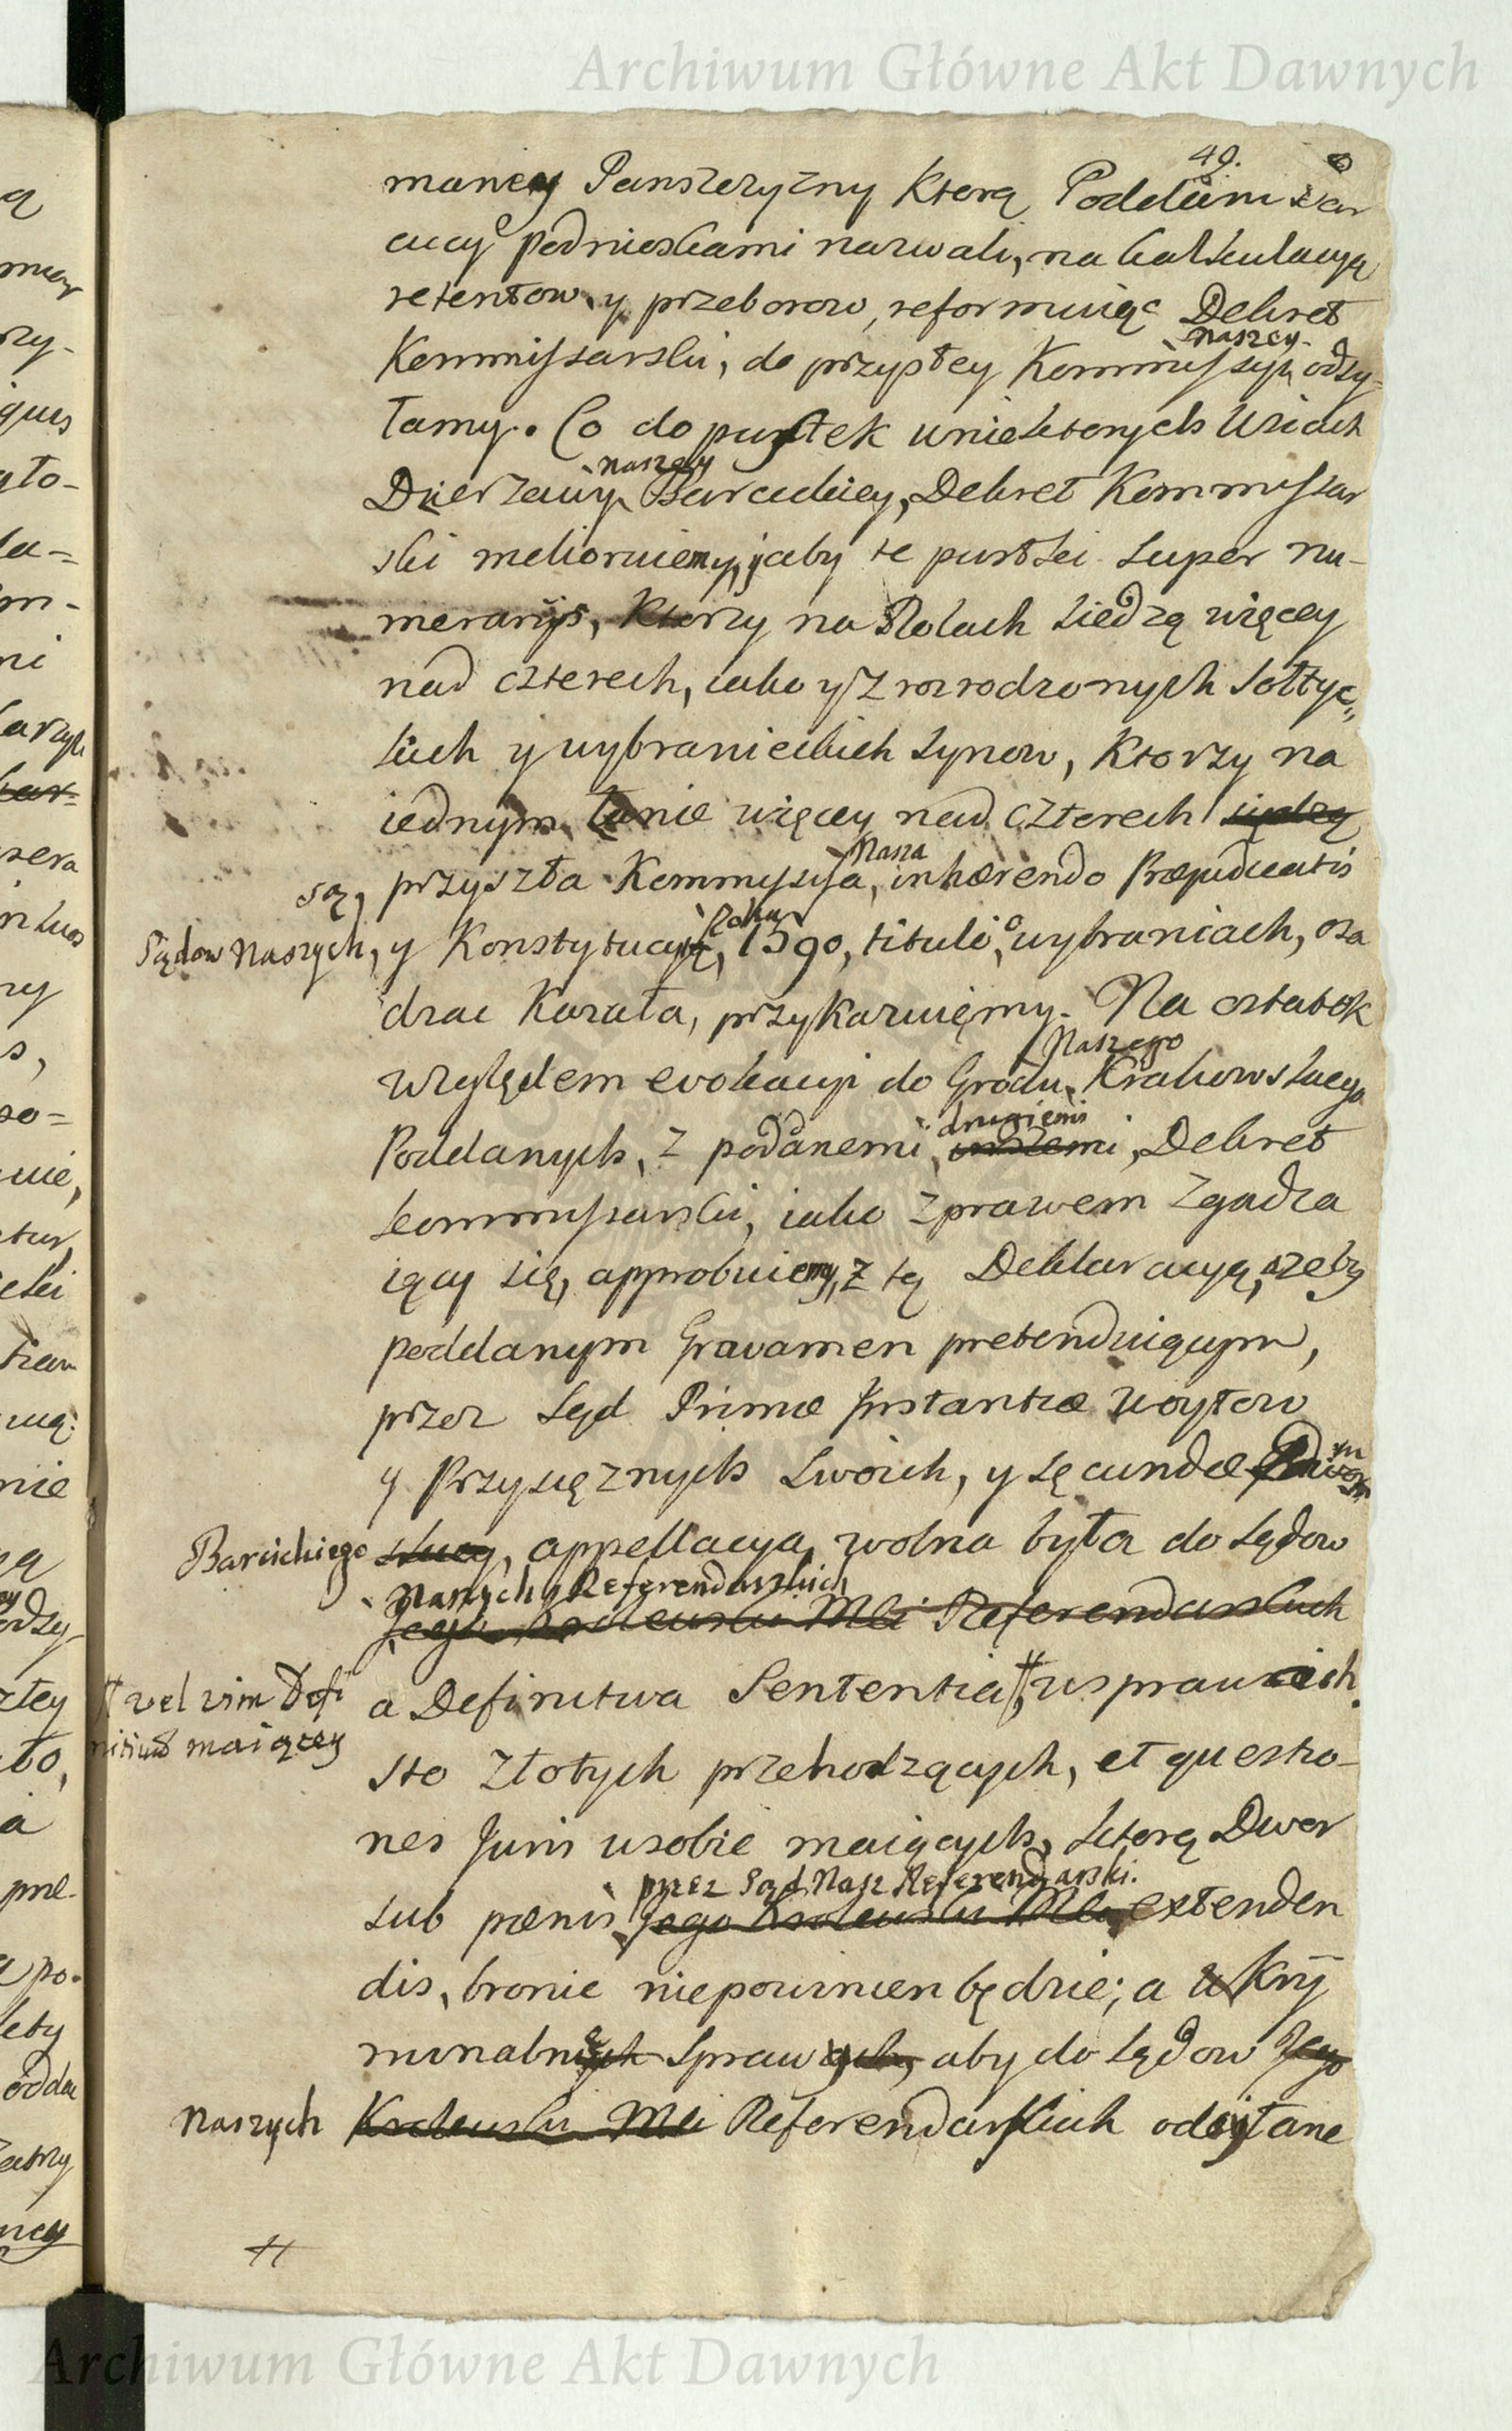 Archiwum Główne Akt Dawnych
49.
maney Panszczyzny ktorą Poddani Bar
ciccy podnieskami nazwali, na kalkulacyą
retentow, y przeborow, reformuiąc Dekret
naszey
Kommissarski, do przyszłey Kommissyi odsy=
łamy. Co do pustek wniektorych Wsiach
naszey
Dzierzawy Barcickiey, Dekret Kommissar
ski meliorniemy, aby te pustki super nu-
merariis, ktorzy na Rolach siedzą więcey
nad czterech, iako y z rozrodzonych Sołtyc=
kich y wybranieckich synow, ktorzy na
iednym łanie więcey nad czterech siedzą
Nasza
są, przyszła Kommyssya, inhærendo Præjudicatis
Roku
Sądow Naszych, y Konstytucyi, 1590, tituli, o wybrańcach, osa
dzac kazała, przykazuiemy. Na ostatek
Naszego
względem evokacyi do Grodu Krakowskiego
drugiemi
Poddanych, z podanemi, inszemi, Dekret
kommyssarski, iako z prawem zgadza
iący się, approbuiemy, z tą Deklaracyą, azeby
poddanym Gravamen pretenduiącym,
przez Sąd Primæ Instantiæ Woytow
y Przysięznych swoich, y secundæ Dworu
Barcickiego, appellacya wolna była do Sądow
Naszych Referendarskich
Jego Krolewski Mci Referendarskich
a Definitiva Sententia wsprawach
vel vim Defi
nitivæ maiącey
sto złotych przehodzących, et questio-
nes Juris wsobie maiących, ktorą Dwor
przez Sąd Nasz Referendarski.
sub pœnis Jego Krolewski Mci extenden
dis, bronic niepowinien będzie; a w Kry
minalnych sprawach, aby do Sądow Jego
Naszych Krolewski Mci Referendarskich odsyłane
Archiwum Główne Akt Dawnych